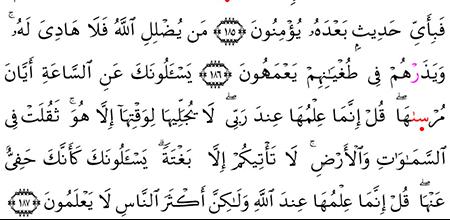 فَبِأَيِّ حَدِيثٍۭ بَعْدَهُۥ يُؤْمِنُونَ ﴿١٨٥﴾ مَن يُضْلِلِ ٱللَّهُ فَلَا هَادِىَ لَهُۥ ۚ
وَيَذَرُهُمْ فِى طُغْيَـٰنِهِمْ يَعْمَهُونَ ﴿١٨٦﴾ يَسْـَٔلُونَكَ عَنِ ٱلسَّاعَةِ أَيَّانَ
مُرْسَىٰهَا ۖ قُلْ إِنَّمَا عِلْمُهَا عِندَ رَبِّى ۖ لَا يُجَلِّيهَا لِوَقْتِهَآ إِلَّا هُوَ ۚ ثَقُلَتْ فِى
ٱلسَّمَـٰوَٰتِ وَٱلْأَرْضِ ۚ لَا تَأْتِيكُمْ إِلَّا بَغْتَةً ۗ يَسْـَٔلُونَكَ كَأَنَّكَ حَفِىٌّ
عَنْهَا ۖ قُلْ إِنَّمَا عِلْمُهَا عِندَ ٱللَّهِ وَلَـٰكِنَّ أَكْثَرَ ٱلنَّاسِ لَا يَعْلَمُونَ ﴿١٨٧﴾